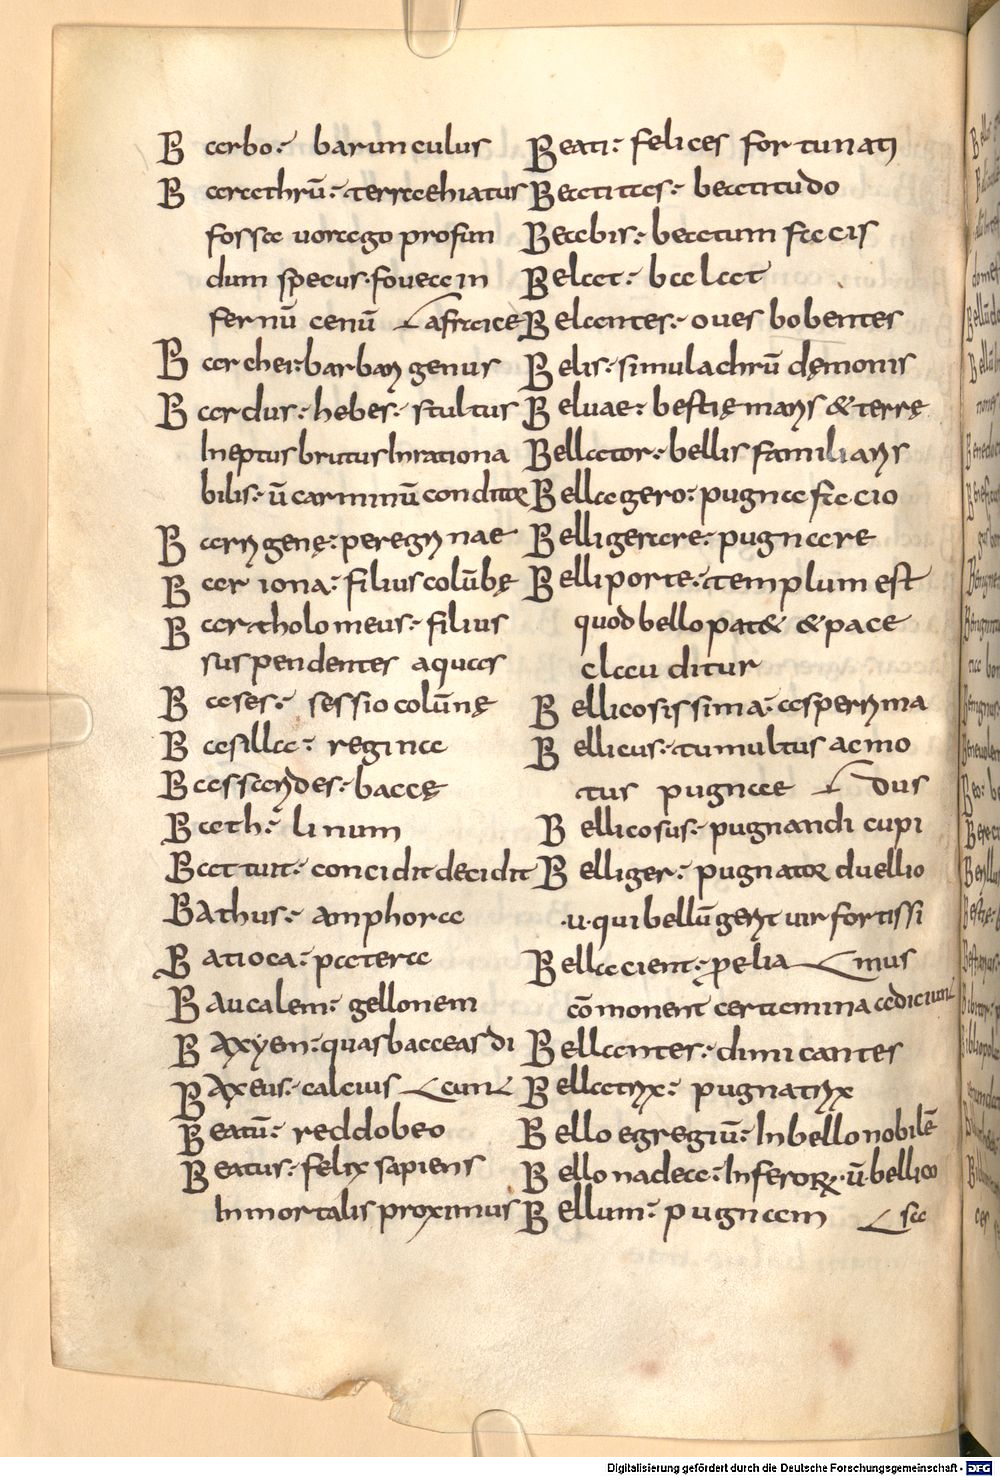 Barbo: barunculus
Barathrū: terrae hiatus
fossa uorago profun
dum specus fouea in
fernū cenū africae
Barchei: barbari genus
Bardus: hebes: stultus
Ineptus brutus Inrationa
bilis: ū carminū conditor
Barrigenę: peregrinae
Bar iona: filius colūbę
Bartholomeus: filius
suspendentes aquas
Bases: sessio colūnę
Basilla: regina
Bassarides: baccę
Bath: linum
Battuit: concidit decidit
Bathus: amphora
Batioca: patera
Baucalem: gellonem
Baxyem: quas bacceas di
Baxeus: calcius cunt
Beatū: reddo beo
Beatus: felix sapiens
Inmortalis proximus
Beati: felices fortunati
Beatitas: beatitudo
Beabis: beatum facis
Belat: balat
Belantes: oues bobentes
Belis: simulachrū dęmonis
Beluae: bestię maris & terrę
Bellator: bellis familiaris
Bellagero: pugna facio
Belligerare: pugnare
Belliporte: templum est
quod bello pat& & pace
clauditur
Bellicosissima: asperrima
Bellicus: tumultus ac mo
tus pugnae dus
Bellicosus: pugnandi cupi
Belliger: pugnator duellio
.u. qui bellū gerit uir fortissi
Bellacient: p̱relia mus
cōmonent certamina adiciunt
Bellantes: dimicantes
Bellatrix: pugnatrix
Bello egregiū: In bello nobilē
Bellonadea: Inferorꝝ. ū. bellico
Bellum: pugnam sa
Digitalisierung gefördert durch die Deutsche Forschungsgemeinschaft - DFG